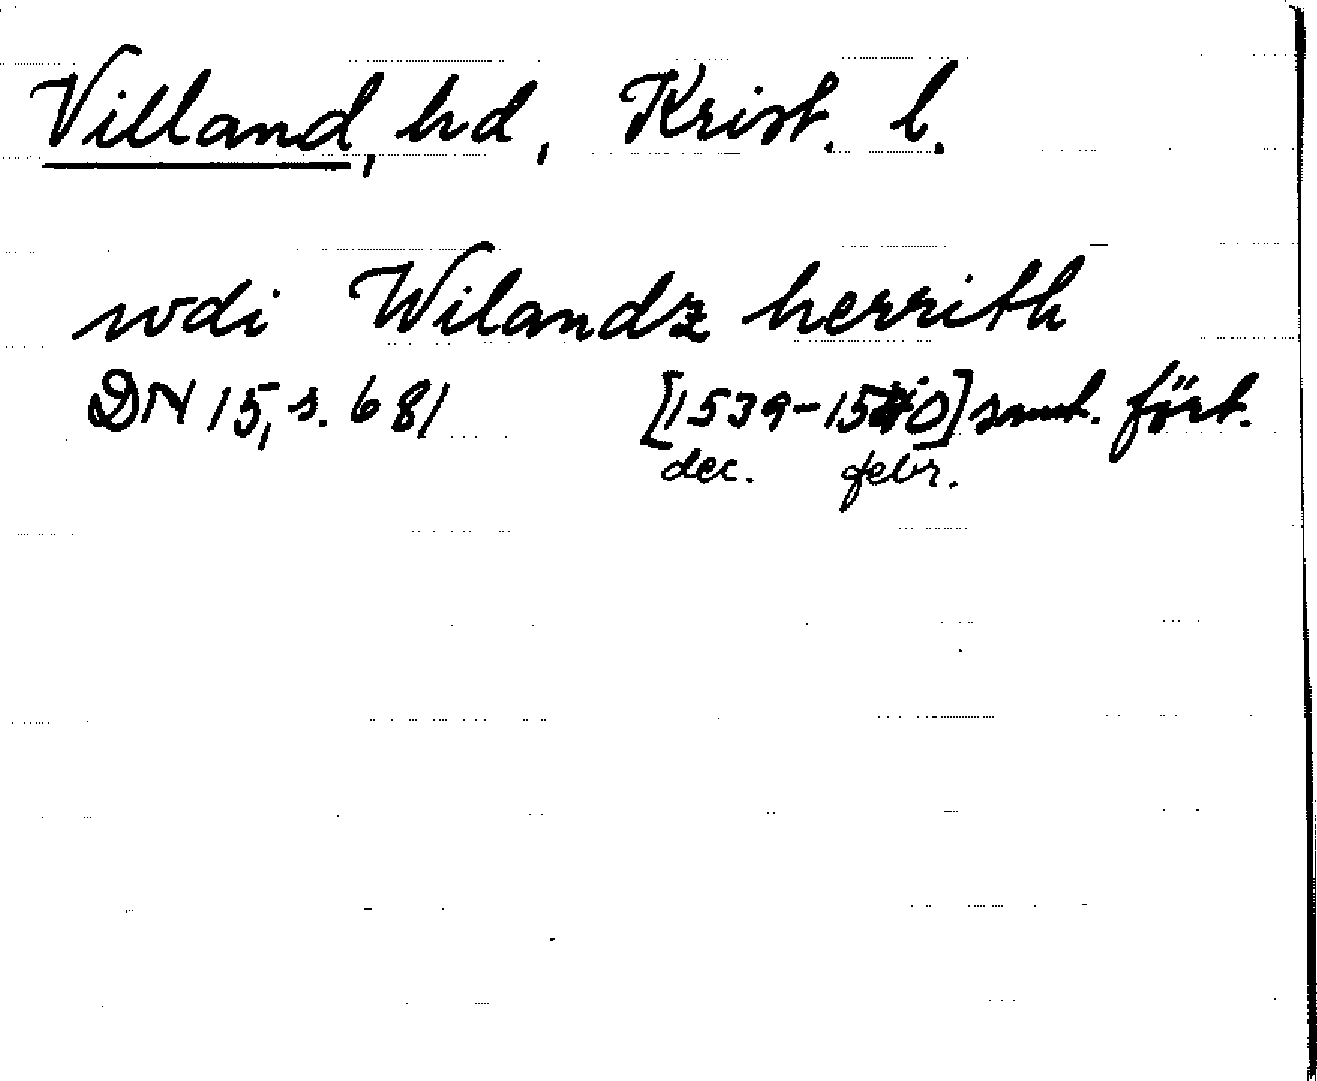 Villand, hd, Krist. l.
wdi Wilandz herrith
DN 15, s. 681 [1539-1540] samt. fört.
dec. febr.